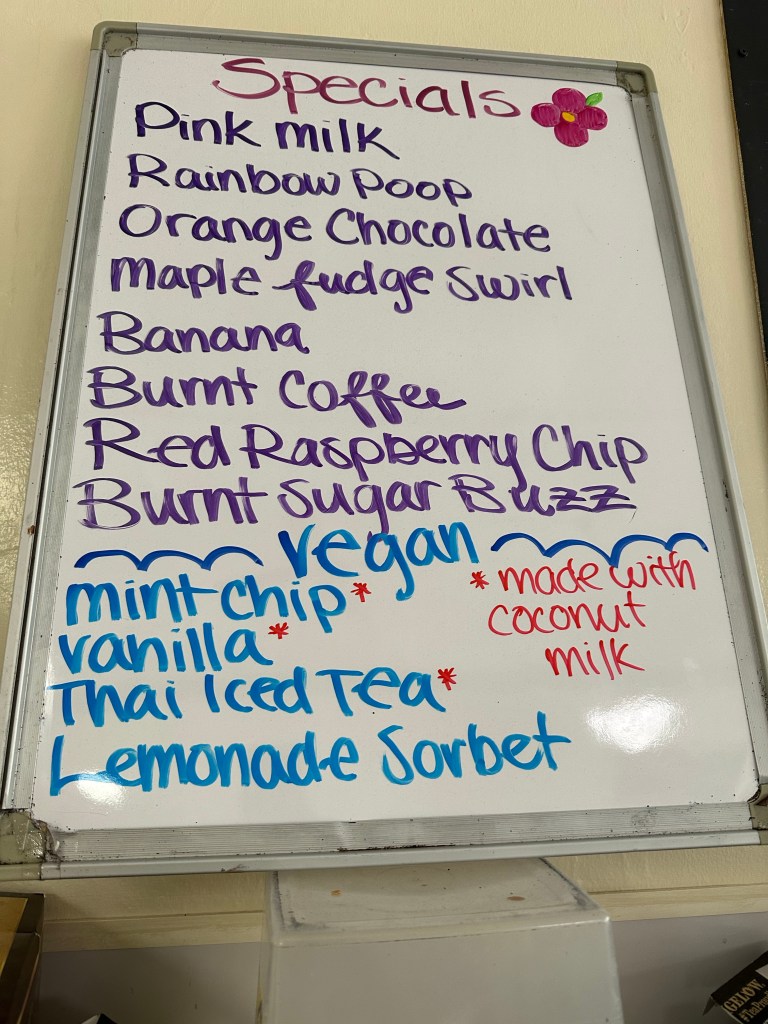 Specials
Pink milk
Rainbow Poop
Orange Chocolate
maple fudge swirl
Banana
Burnt Coffee
Red Raspberry Chip
Burnt sugar Buzz
vegan
mint chip*
vanilla*
Thai Iced Tea*
Lemonade Sorbet
* made with
coconut
milk
GELOW,